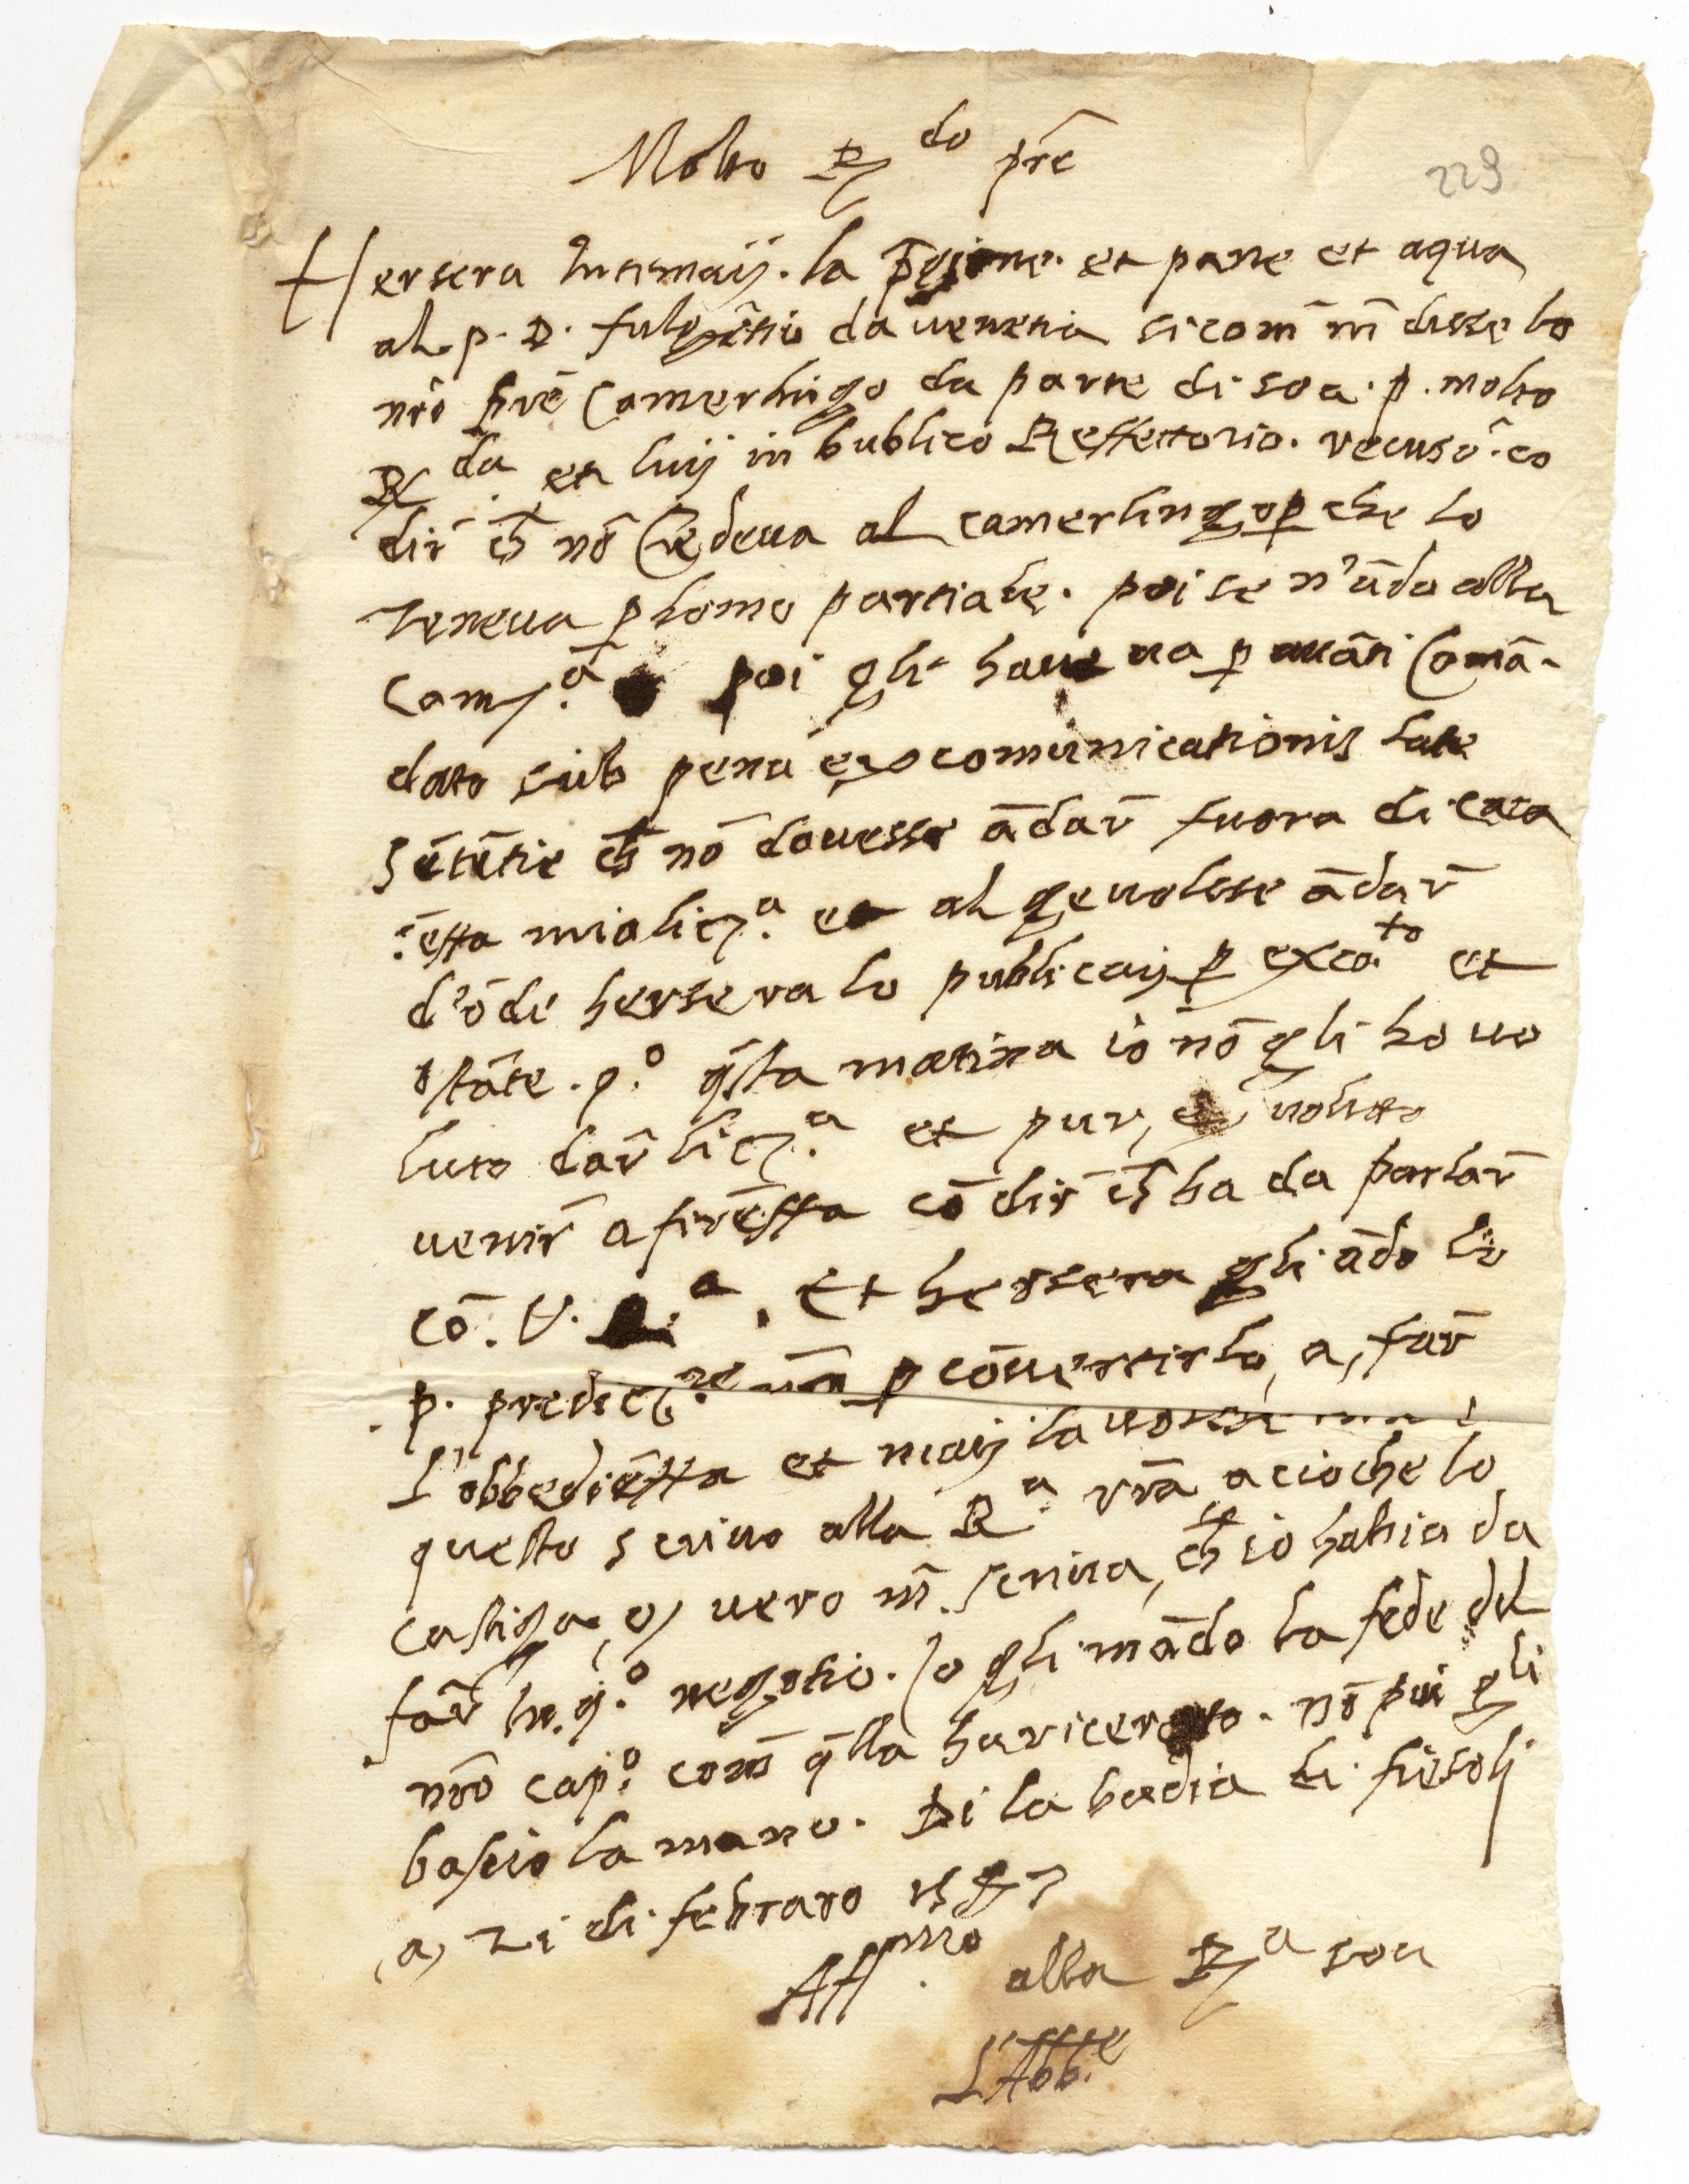 Molto R.do p̄re
229
Hersera Intimaij. la p̄gione. et pane et aqua
al. p. D. fulgẽtio da uenetia sicom̄ m̄ disse lo
nr̄o p̄re Camerlingo da parte di soa. p. molto
R.da et luij in bublico Reffettorio. recusò. cō
dir̄ ch̄ nō Credeua al camerlingo p̱ che lo
teneua p̱ homo partiale. poi se n'ādo alla
Cam.a poi gli haueua p̱ auāti Comā-
dato sub pena excomunicationis late
sētētie ch̄ nō douesse ādar̄ fuora di casa
mia lic.a et al uolsse ādar̄
d'ōde hersera lo publicaij p̱ exco.to et
stāte. q.o q̄sta matina io nō gli ho uo
luto dar̄ lic.a et pur, uoluto
uenir̄ a firēssa cō dir̄ ch̄ ha da parlar̄
cō. V. .a. Et hersera gli ādo lo
p. predic.re p̱ cōuertirlo, a, far̄
L'obbediētia et maij la uolsse
questo scriuo alla R.a vr̄a acioche lo
castiga, o, uero m̄ scriua, ch̄ io habia da
far̄ In. q.o negotio. Io gli mādo la fede del
nr̄o cap.o com̄ q̄lla ha ricercato. nō poi gli
bascio la mano. Di la badia di fiesoli
a, 21 di febraro 1587
Aff.mo alla R.a soa
L'Abb.e